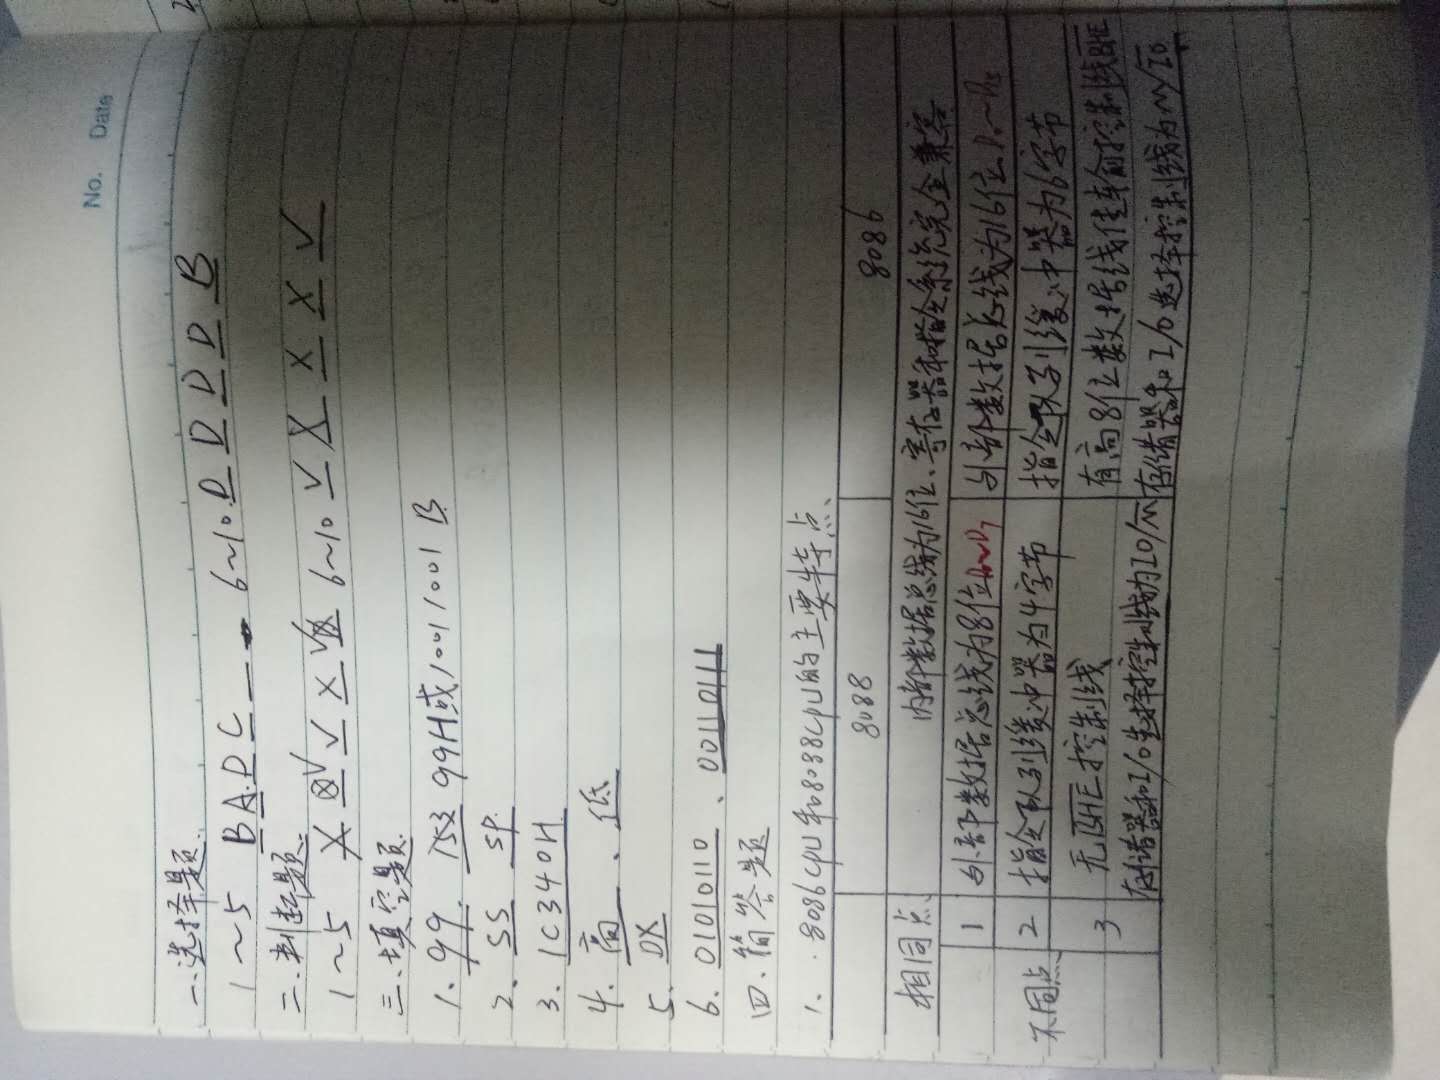 No. Date
一.选择题.
1~5 B A. D C 6~10. D D D D B
二.判断题.
1~5 X ⊗√ √ X √ 6~10 √ X X X √
三.填空题.
1. 99. 153 99H或10011001 B
2. SS SP.
3. 1C340H
4. 高、低
5. DX
6. 01010110、00110111
四.简答题
1. 8086CPU和8088CPU的主要特点
8088 8086
相同点 内部数据总线为16位、寄存器和指令系统完全兼容
不同点
1 外部数据总线为8位D0~D7 外部数据总线为16位D0~D15
2 指令队列缓冲器为4字节 指令队列缓冲器为6字节
3 无B̅H̅E̅控制线 有高8位数据线传输控制线B̅H̅E̅
存储器和I/O选择控制线为IO/M̅ 存储器和I/O选择控制线为M/I̅O̅